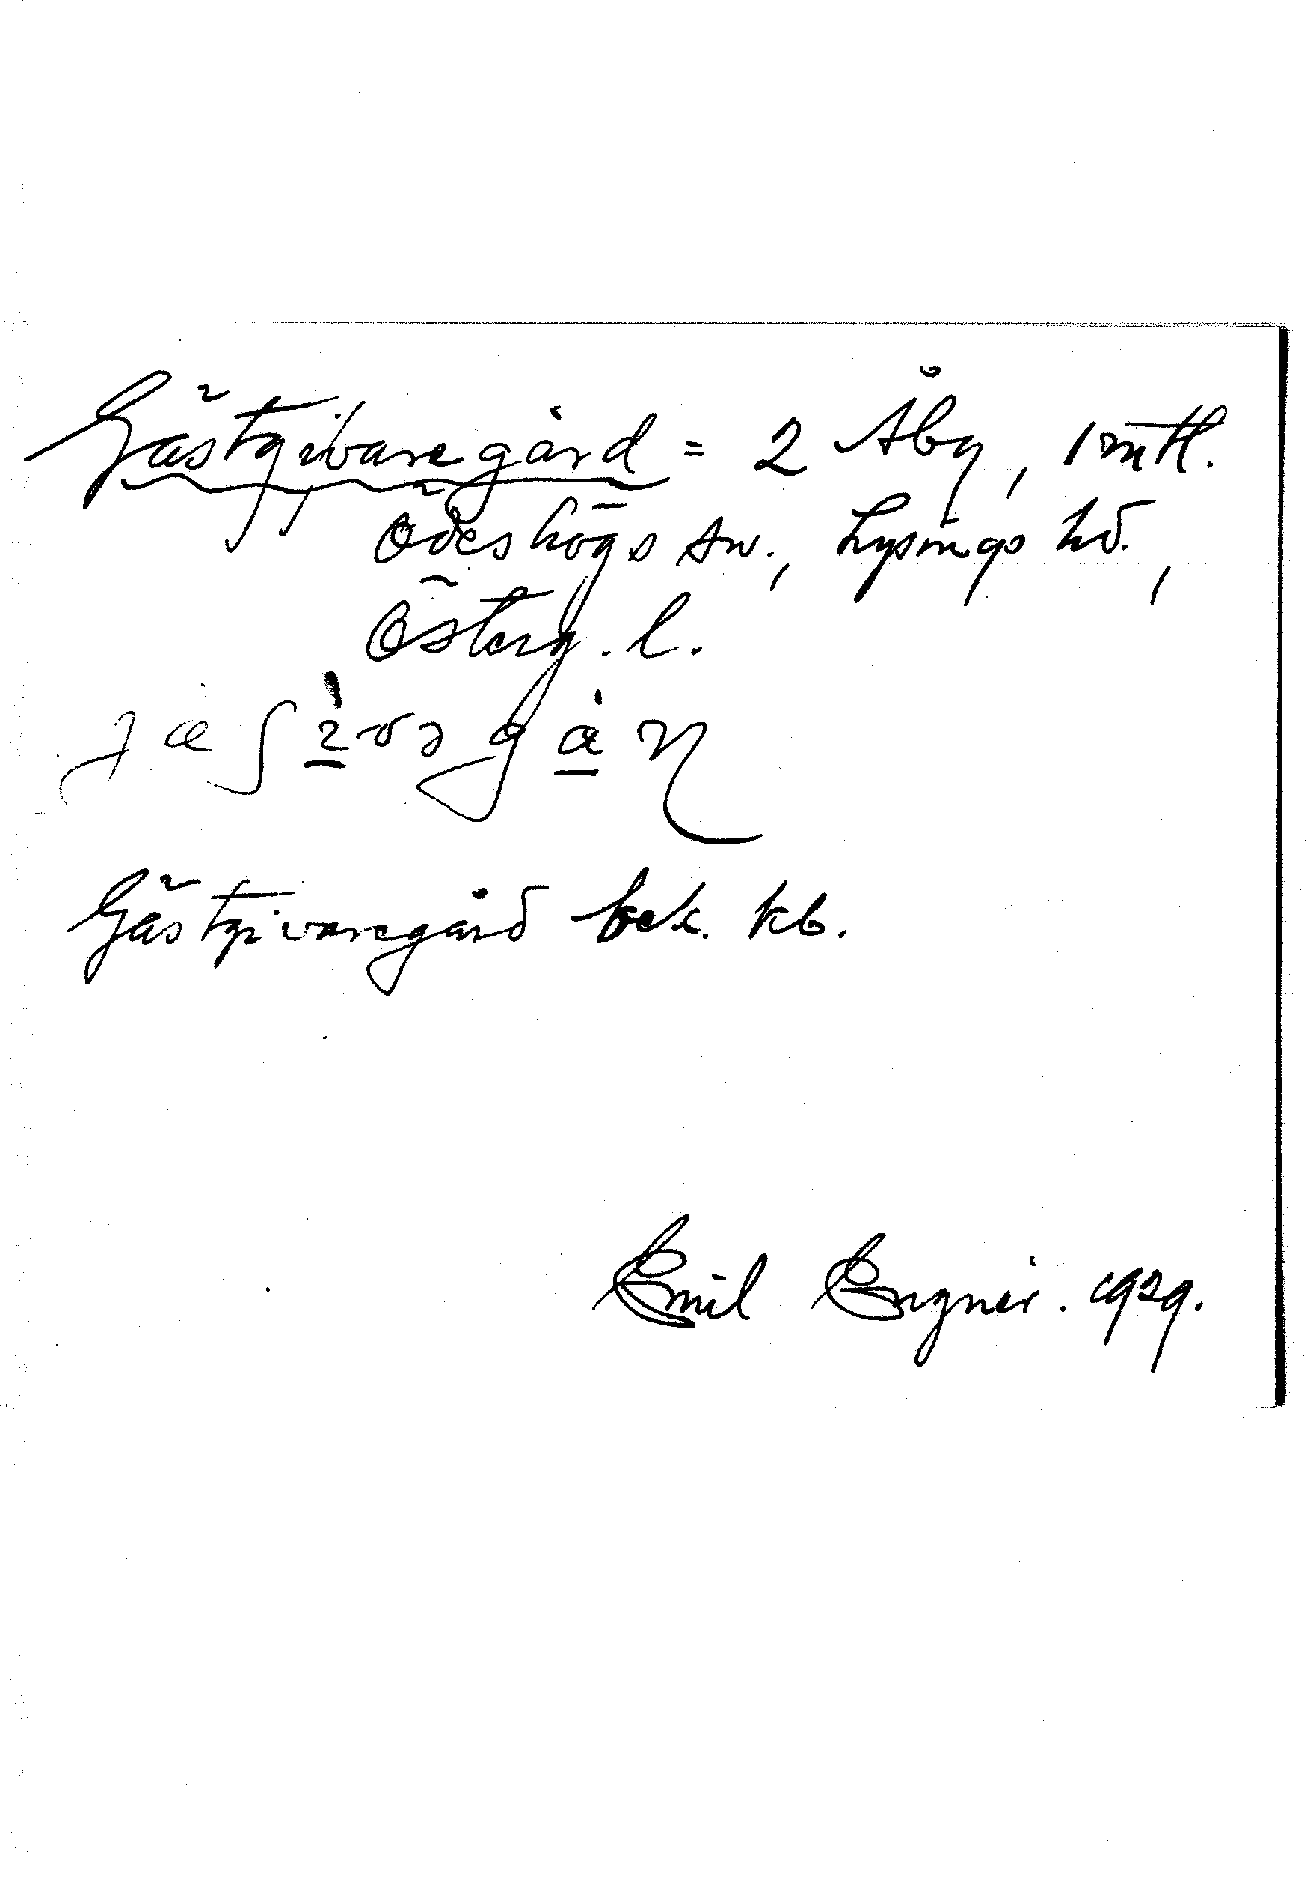 Gästgivaregård = 2 Åby, 1 mtl.
Ödeshögs sn., Lysings hd.,
Österg. l.
Gästgivaregård bek. kb.
Emil Engner. 1929.